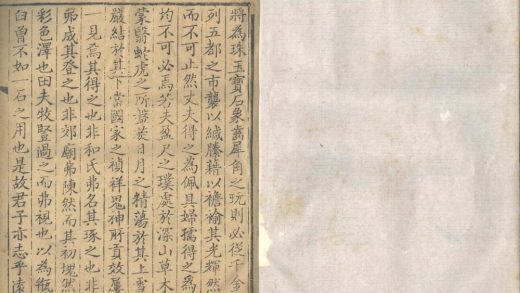 將為珠玉寶石象齒犀角之玩則必從千金
列五都之市襲以緘縢藉以襜褕其光輝然
而不可止然丈夫得之為佩具婦孺得之為
均不可必焉若夫盈尺之璞處於深山草木
蒙翳蛇虎之所日月之精蕩於其上雪
嚴結於其下當國家之禎祥鬼神肵貢效屢
一見焉其得之也非和氏弗名其琢之也非
弗成其登之也非郊廟弗陳然而其初塊然
彩色澤也田夫牧豎過之而弗視也以為瓶
臼曾不如一石之用也是故君子亦志乎遠